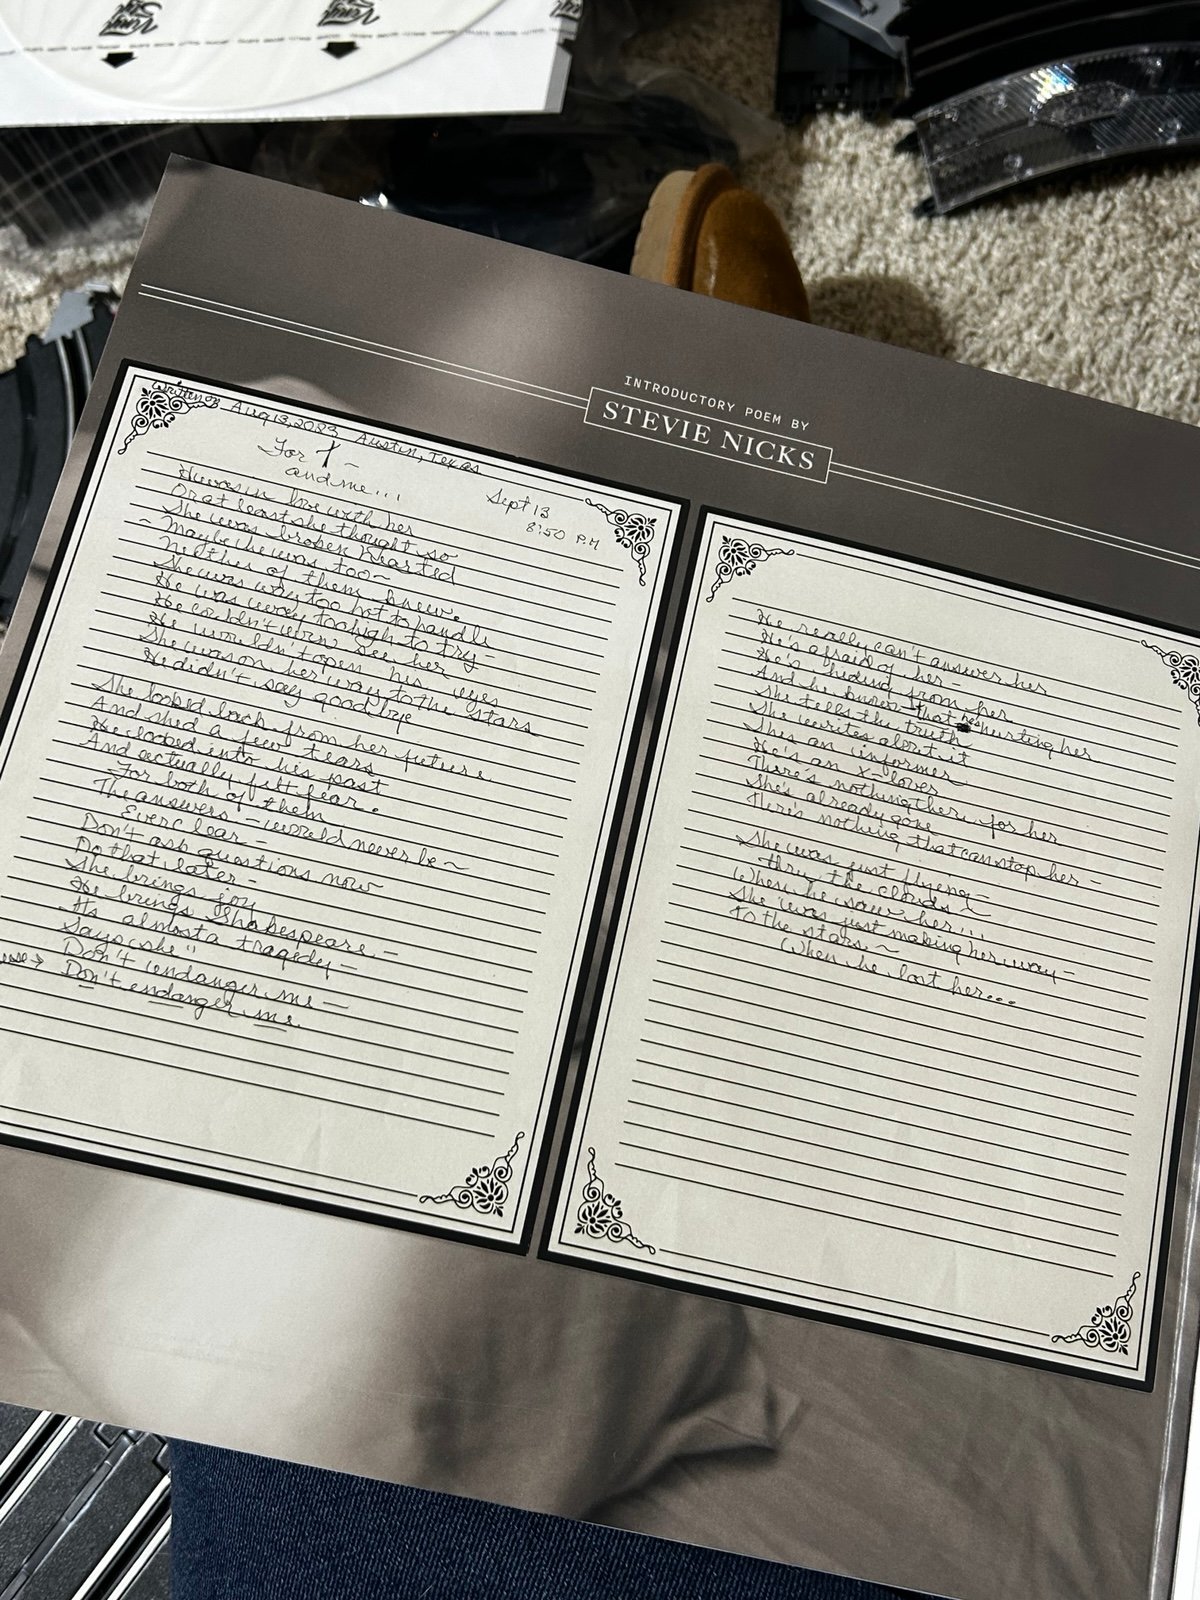 Vinyl
Vinyl
INTRODUCTORY POEM BY
STEVIE NICKS
Written Aug 13, 2023 Austin, Texas
For T ~
and me...
Sept 13
8:50 P.M
He was in love with her
Or at least she thought so
She was broken hearted
- Maybe he was too ~
Neither of them knew.
She was way too hot to handle
He was way too high to try
He couldn't even see her
He wouldn't open his eyes
She was on her way to the stars
He didn't say goodbye
She looked back from her future
And shed a few tears
He looked into his past
And actually felt fear.
For both of them
The answers - would never be ~
Ever clear -
Don't ask questions now
Do that later -
She brings joy
He brings Shakespeare -
Its almost a tragedy -
Says she "
Don't endanger me -
Don't endanger me.
He really can't answer her
He's afraid of her -
He's hiding from her
And he knows that he's hurting her
She tells the truth
She writes about it
She's an informer
He's an x-lover
There's nothing there for her
She's already gone
There's nothing that can stop her -
She was just flying -
thru the clouds
When he saw her...
She was just making her way -
To the stars ~
When he lost her...